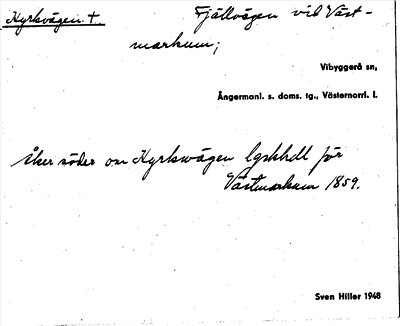 Kyrkvägen. †. Fjällvägen vid Väst-
markum;
Vibyggerå sn,
Ångermanl. s. doms. tg., Västernorrl. l.
Åker söder om Kyrkvägen lgskhdl för
Västmarkum 1859.
Sven Hiller 1948